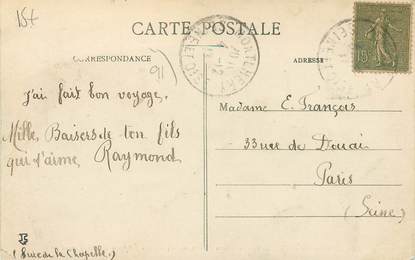 15f
CARTE POSTALE
CORRESPONDANCE
ADRESSE
91
J'ai fait bon voyage.
Mille Baisers de ton fils
qui t'aime, Raymond
Madame E. François
33 rue de Douai
Paris
(Seine)
MONTLHERY
15